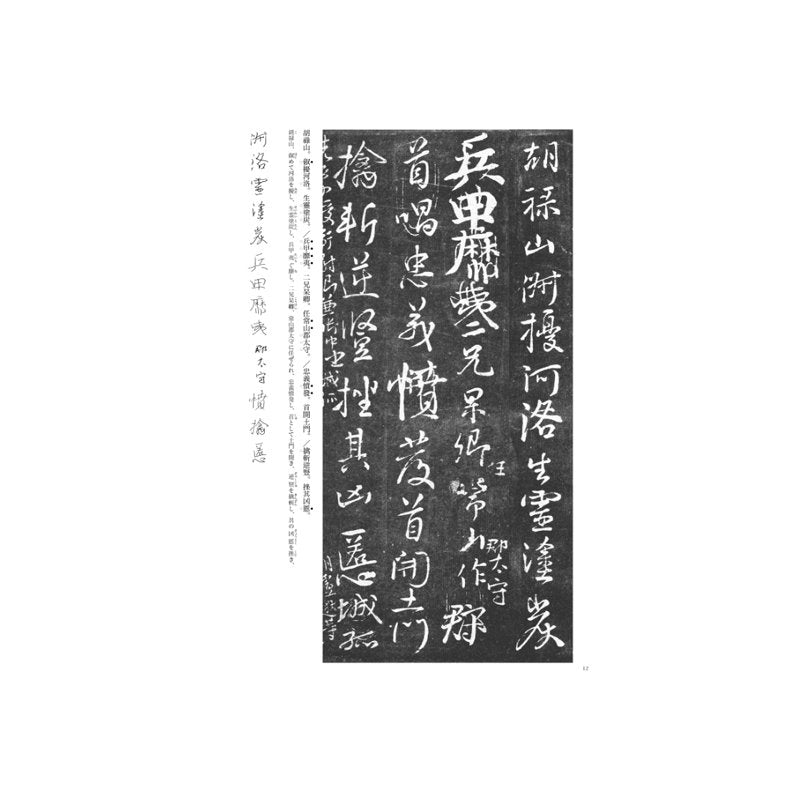 胡祿山俶擾河洛生靈塗炭
兵甲靡夷二兄杲卿任常山作郡
郡太守
首唱忠義憤發首開土門
擒斬逆豎挫其凶慝城孤
胡祿山。俶擾河洛。生靈塗炭。／兵甲靡夷。二兄杲卿。任常山郡太守。／忠義憤發。首開土門。／擒斬逆豎。挫其凶慝。
胡祿山、俶めて河洛を擾し、生靈塗炭し、兵甲夷ぐ靡し。二兄杲卿、常山郡太守に任ぜられ、忠義憤發し、首として土門を開き、逆豎を擒斬し、其の凶慝を挫き、
俶洛靈塗炭兵甲靡夷郡太守憤擒慝
12